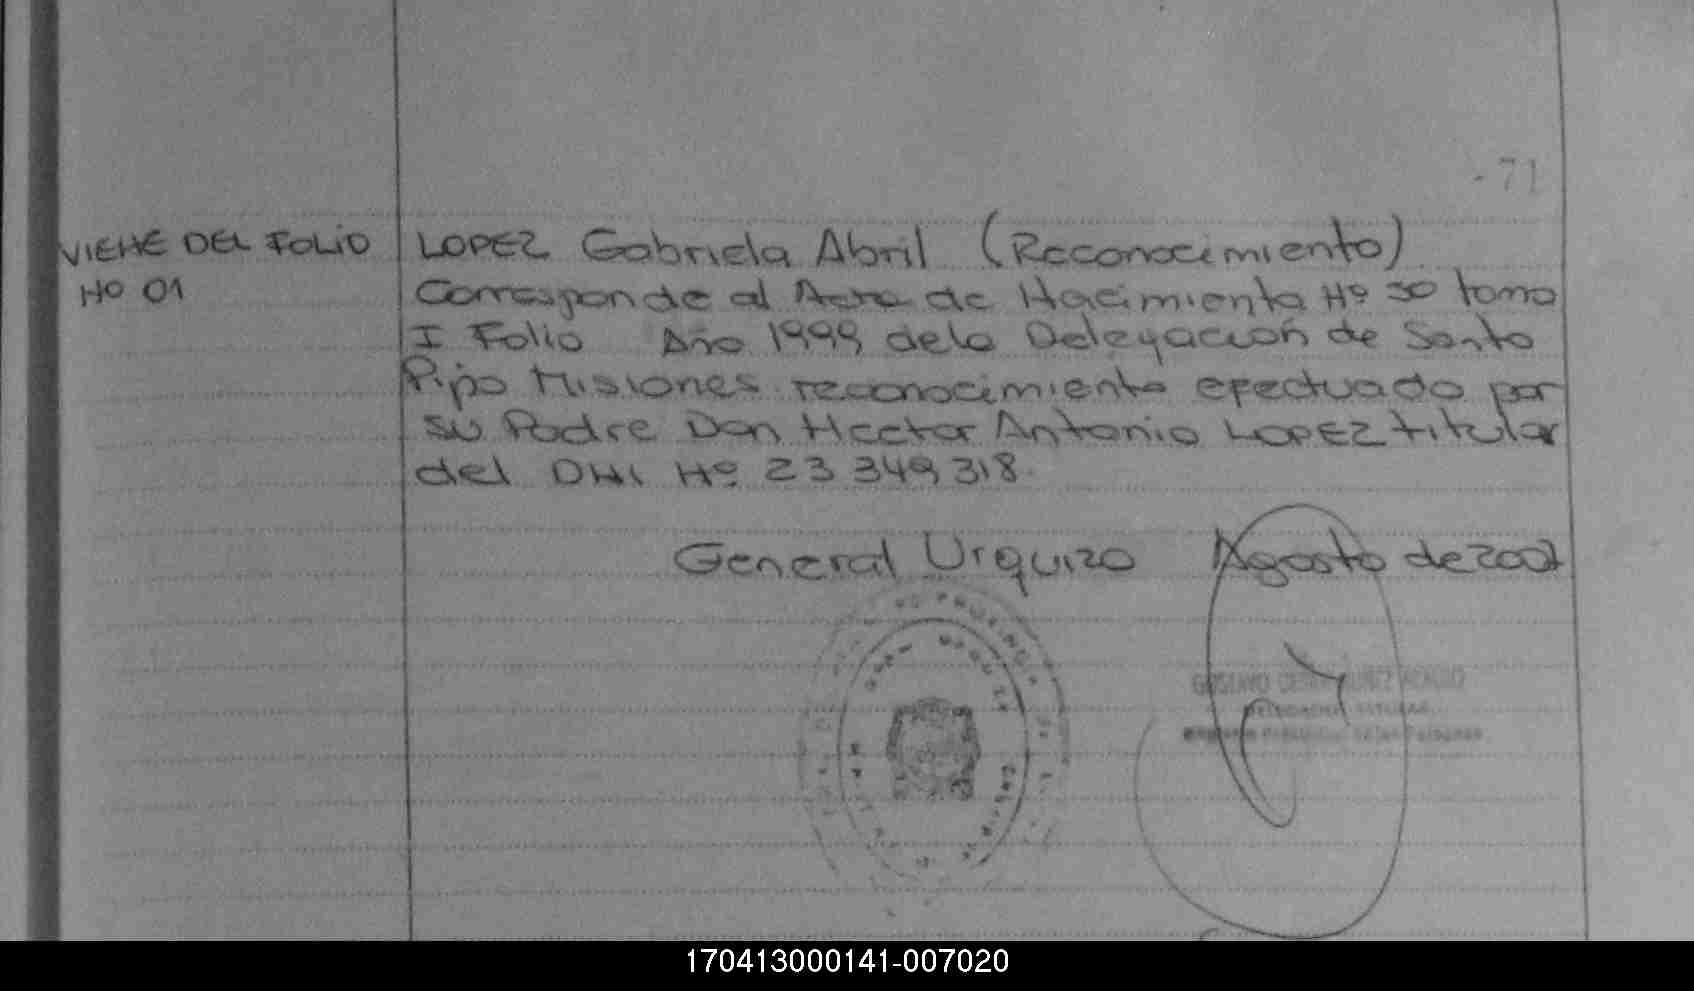 - 71
VIENE DEL FOLIO
Nº 01
LOPEZ Gabriela Abril (Reconocimiento)
Corresponde al Acta de Nacimiento Nº 30 tomo
I Folio Año 1999 dela Delegación de Santo
Pipo Misiones reconocimiento efectuado por
su Padre Don Hector Antonio LOPEZ titular
del DNI Nº 23 349 318.
General Urquiza Agosto de 2002
170413000141-007020